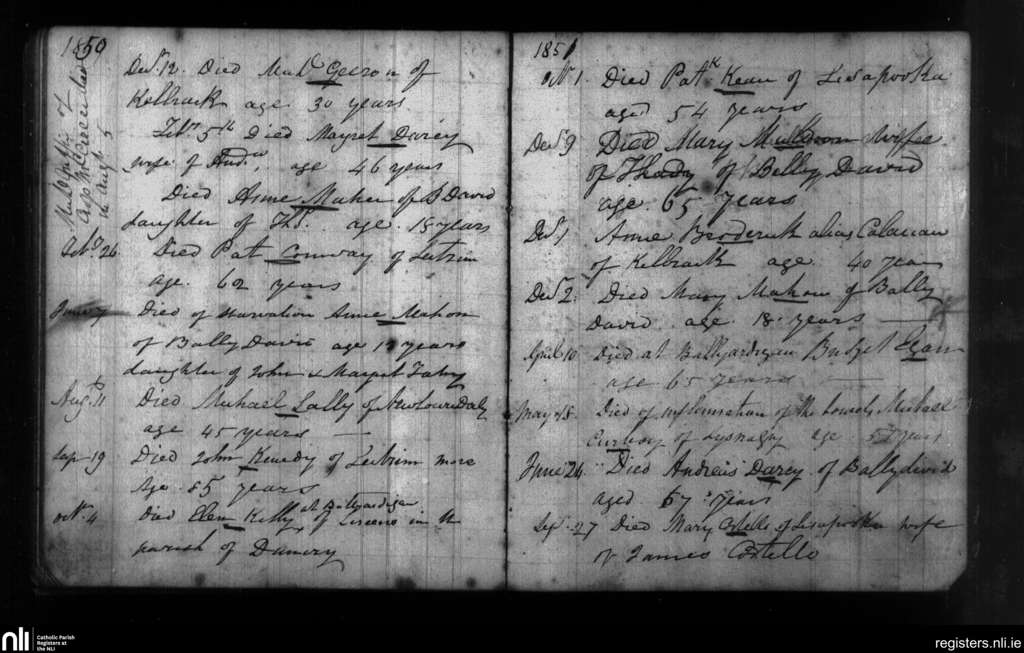 1850
Decr. 12. Died Mich Geeron of
Kelbrack age 30 years
Feby 5th Died Margret Darcy
wife of Andw. age 46 years
Died Anne Maher of B David
daughter of Ths. age 18 years
26 Died Pat Conway of Leitrim
age 62 years
June 7 Died of starvation Anne Mahon
of Bally David age 17 years
daughter of John & Margret Fahy
Augt 11 Died Michael Lally of Daly
age 45 years
Sep 19 Died John Kenedy of Leitrim more
age 85 years
octr. 4 Died Elen Kelly at Ballyardigan of in the
parish of Duniry
1851
octr 1. Died Patk Kean of Lisapooka
aged 54 years
Decr 9 Died Mary Muldoon wife
of Thady of Bally David
age 65 years
Decr 1 Anne Broderick alias Calanan
of Kelbrack age 40 years
Decr 2. Died Mary Mahon of Bally
David age 18 years
April 10 Died at Ballyardigan Bridget Egan
age 65 years
May 18 Died of inflamation of the bowels Michael
of age years
June 24 Died Andreis Darcy of Ballydivid
aged 67 years
Sept. 27 Died Mary Costello of Lisapooka wife
of James Costello
nli
Catholic Parish
Registers at
the NLI
registers.nli.ie